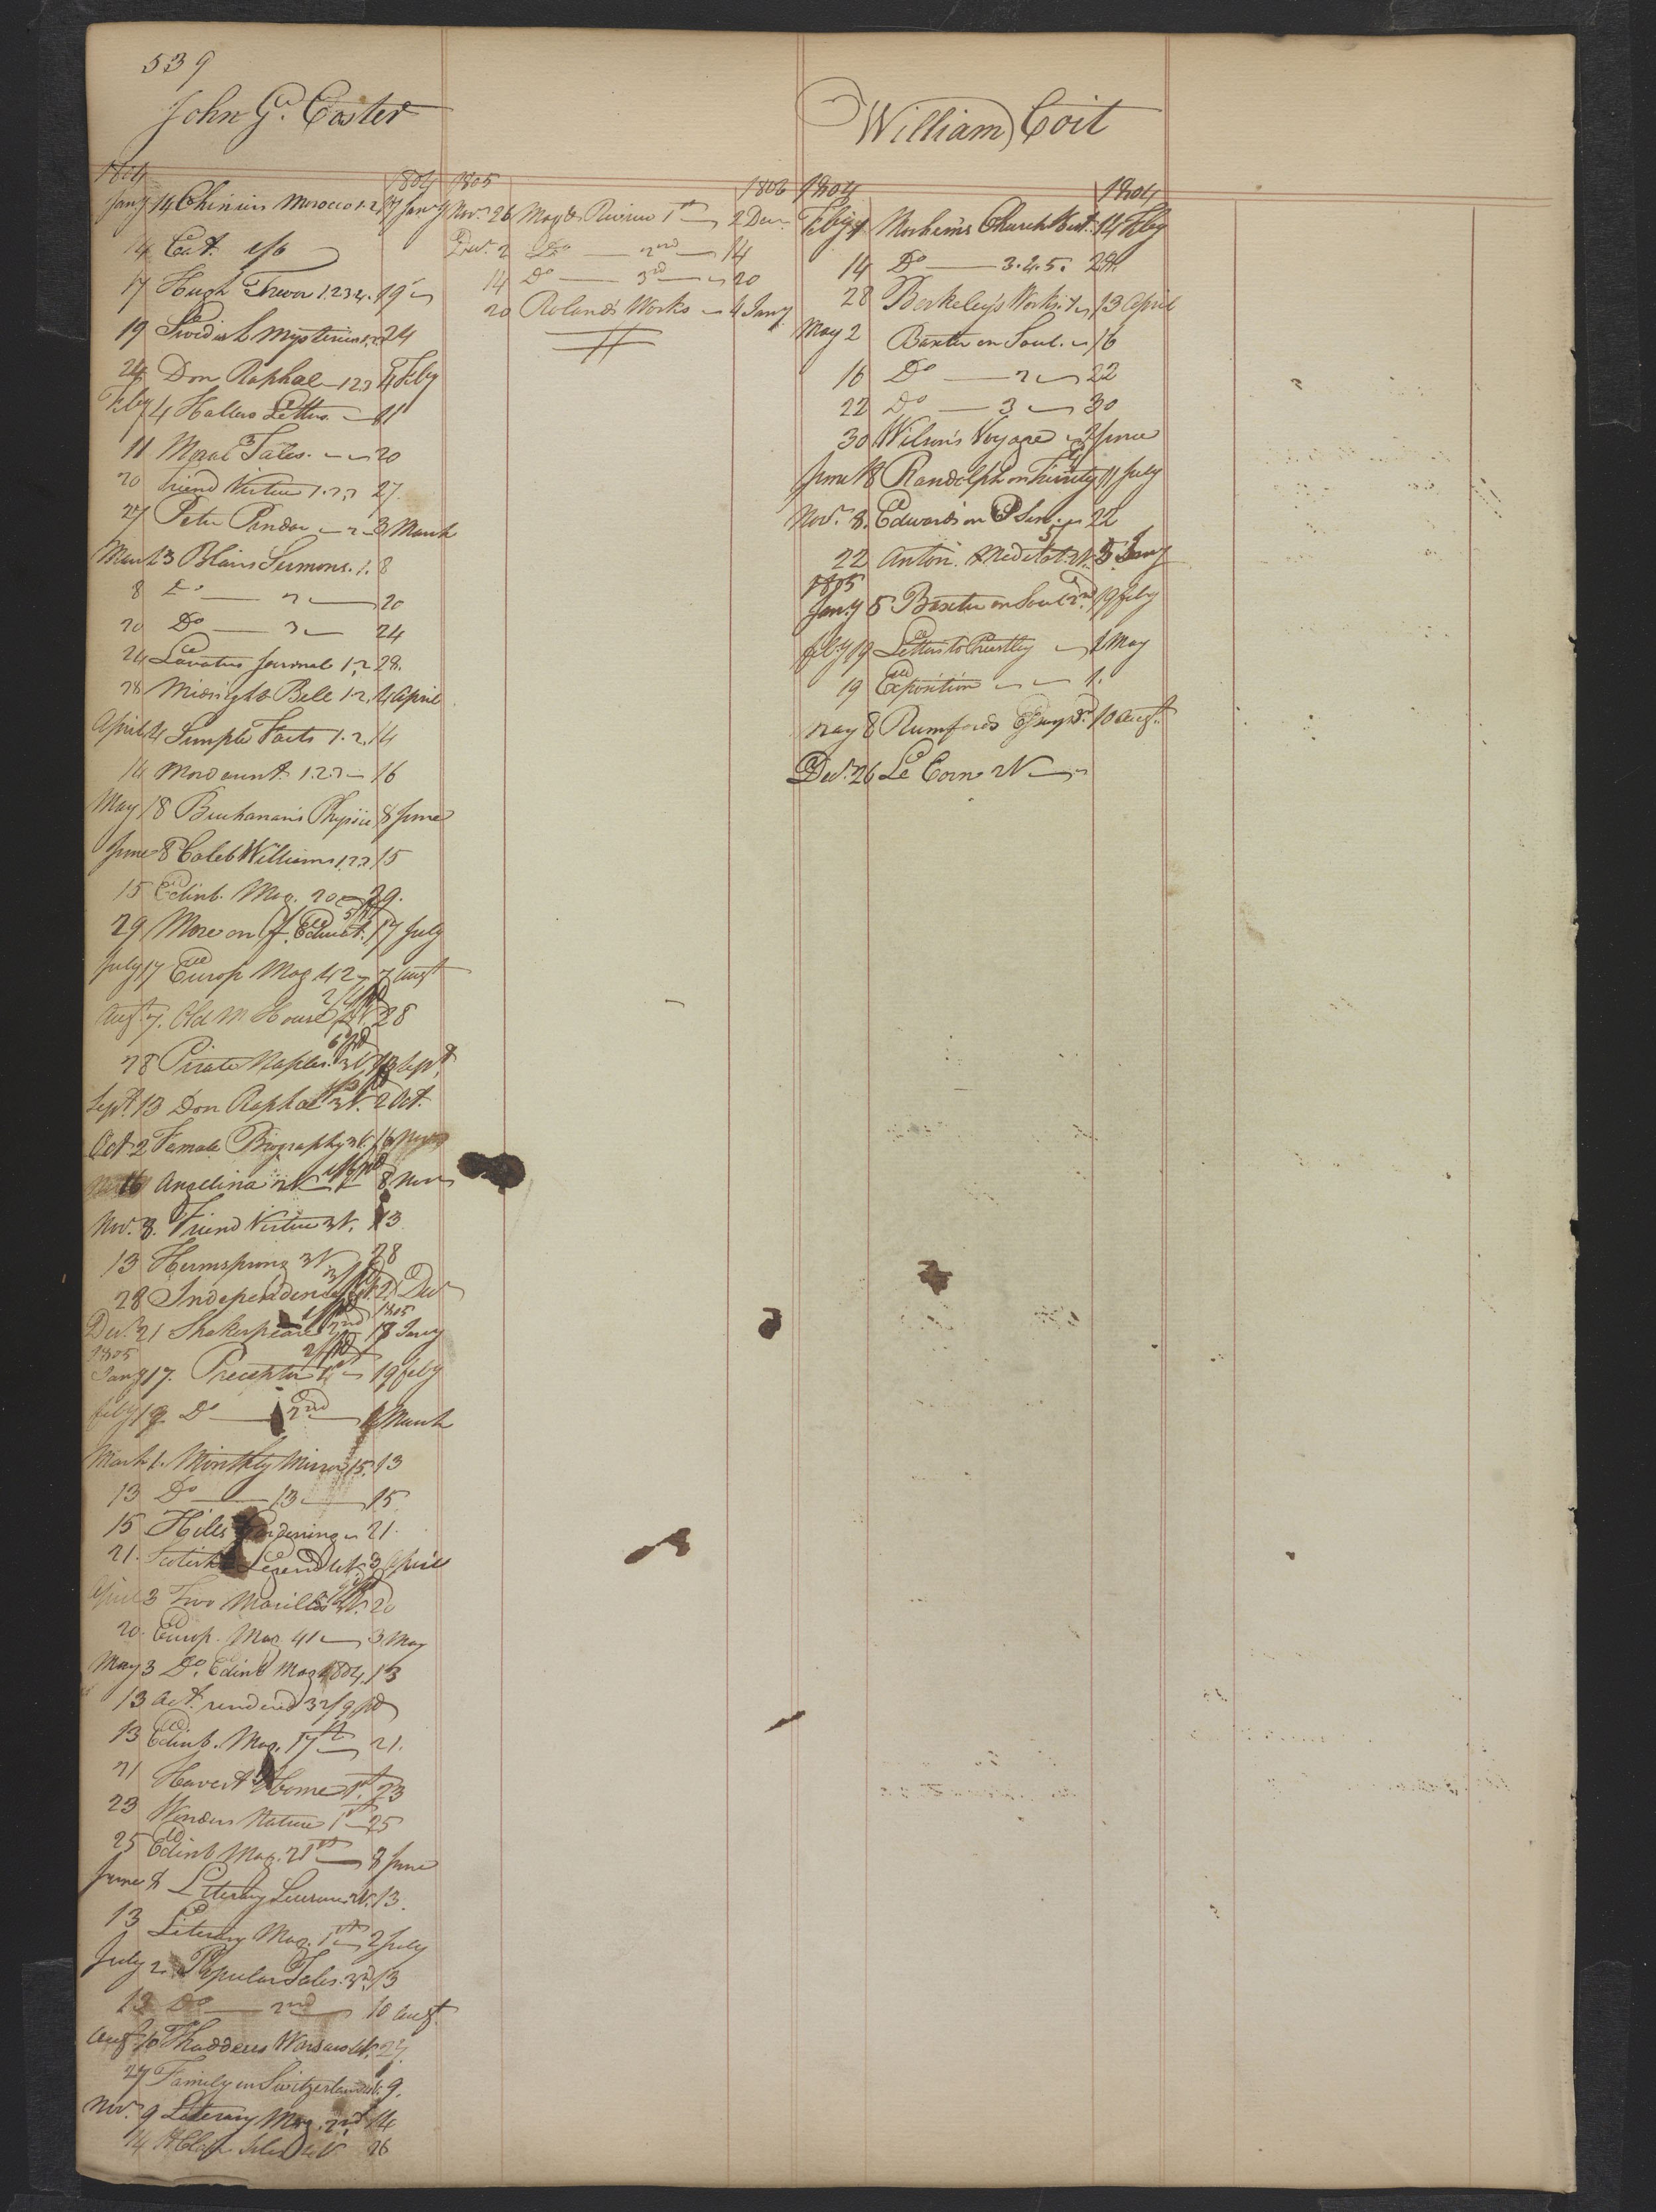 539
John G. Coster
1804 1804
Jany 14 Chiniers Morocco 1.2 17 Jany
14 Cat. 1/6
17 Hugh Trevor 1.2.3.4. 19
19 Swedish Mysteries 1.2.3 24
24 Don Raphael 1.2.3 4 Feby
Feby 4 Hallers Letters 11
11 Moral Tales. 3 20
20 Friend Virtue 1.2.3 27
27 Peter Pindar 2 3 March
March 3 Blairs Sermons. 1. 8
8 Do 2 20
20 Do 3 24
24 Lavaters Journal 1.2 28.
28 Midnight Bell 1.2. 4 April
April 4 Simple Facts 1.2. 14
14 Mordaunt. 1.2.3 16
May 18 Buchanan's Physic 8 June
June 8 Caleb Williams 1.2.3 15
15 Edinb. Mag. 20 29.
29 More on f. Educat. 17 July
July 17 Europ Mag 42 7 Augt
Augt 7. Old M House 4 V. 28
28 Pirate Naples. 3 V. 13 Sept.
Sept. 13 Don Raphael 3 V. 2 Oct.
Oct 2 Female Biography 3 V. 16
16 Angelina 2 V 8 Nov
Nov. 8. Friend Virtue 3 V. 13
13 Hermsprong 3 V 28
28 Independence 21 Decr
1805
Decr. 21 Shakespeare 2nd 17 Jany
1805
Jany 17. Preceptor 1st 19 feby
feby 19 Do 2nd 1 March
March 1. Monthly Mirror 15. 13
13 Do 13 15
15 Hills Gardening 21.
21. Scotish Legend 4 V. 3 April
April 3 Two Marillos 3 V. 20
20. Europ. Mag 41 3 May
May 3 Do. Edinb Mag 1804. 13
13 Act. rendered 32/9 pd
13 Edinb. Mag. 17th 21.
21 Haverst Home 1st. 23
23 Wonders Nature 1st 25
25 Edinb Mag. 21st 8 June
June 8 Literary Leisure 2 V. 13.
13 Literary Mag. 1st 2 July
July 2. Popular Tales. 3rd 13
13 Do 2nd 10 Augt.
Augt 10 Thaddeus Warsaw 4 V. 27.
27 Family in Switzerland 9.
Nov. 9 Literary Mag. 2nd 14
14 26
1805 1806
Novr. 26 Mag & Review 1st 2 Decr
Decr. 2 Do 2nd 14
14 Do 3rd 20
20 Roland's Works 4 Jany
William Coit
1804 1804
Feby 1 Mosheim's Church Hist. 14 Feby
14 Do 3.4.5. 28.
28 Berkeley's Works. 1 13 April
May 2 Baxter on Soul. 16
16 Do 2 22
22 Do 3 30
30 Wilson's Voyage 2 June
June 18 Randolph on Trinity 11 July
Novr. 8. Edwards on 22
22 Anton. Meditat. 2 V. 5 Jany
1805
Jany 5 Baxter on Soul 2nd. 19 feby
feby 19 Letters to Priestley 1 May
19 Exposition 1.
May 8 Rumfords Essays 3rd 10 Augt.
Decr. 26